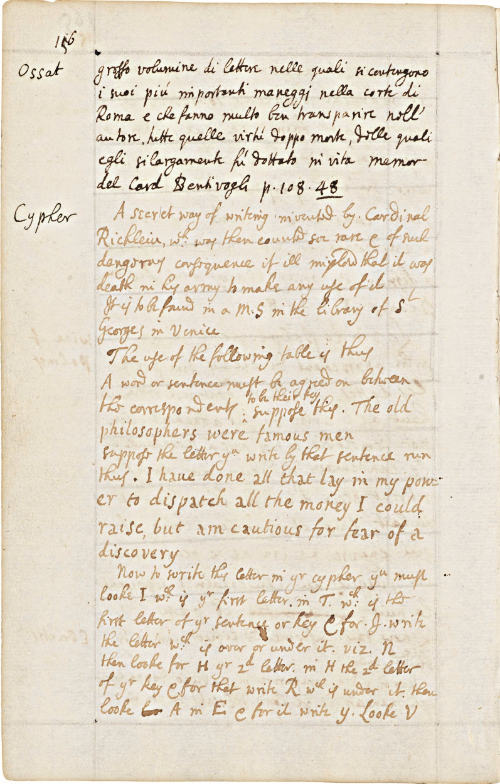 116
Ossat
grosso volumine di lettere nelle quali si contengono
i suoi piú importanti maneggj nella corte di
Roma e che fanno molto ben transparire nell'
autore, tutte quelle virtú doppo morte, delle quali
egli si largamente fú dottato in vita memor
del Card Bentivogli p. 108. 48
Cypher
A secret way of writing invented by Cardinal
Richleiu, wch was then counted soe rare & of such
dangerous consequence if ill imploid that it was
death in his army to make any use of it
It is to be found in a M.S in the library of St
Georges in Venice
The use of the following table is thus
A word or sentence must be agreed on between
the correspondents to be their key
suppose this. The old
philosophers were famous men
suppose the letter yu write by that sentence run
thus. I have done all that lay in my pow-
er to dispatch all the money I could
raise, but am cautious for fear of a
discovery
Now to write this letter in yr cypher yu must
looke I wch is yr first letter. in T. wch is the
first letter of yr sentence or key & for. I. write
the letter wch is over or under it. viz. N
then looke for H yr 2d letter. in H the 2d letter
of yr key & for that write R wch is under it. then
looke A in E & for it write y. Looke V